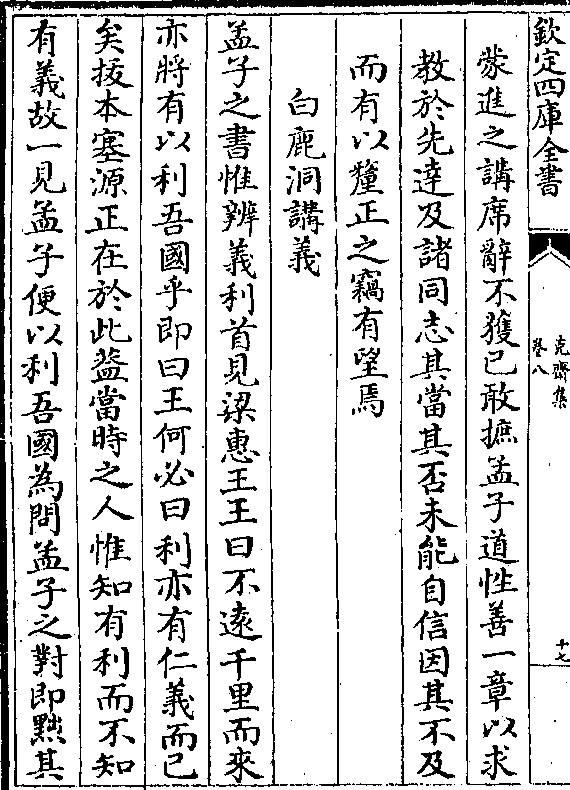 欽定四庫全書
克齋集
卷八
十七
蒙進之講席辭不獲已敢摭孟子道性善一章以求
教於先達及諸同志其當其否未能自信因其不及
而有以釐正之竊有望焉
白鹿洞講義
孟子之書惟辨義利首見梁惠王王曰不遠千里而來
亦將有以利吾國乎即曰王何必曰利亦有仁義而已
矣拔本塞源正在於此葢當時之人惟知有利而不知
有義故一見孟子便以利吾國為問孟子之對即㸃其